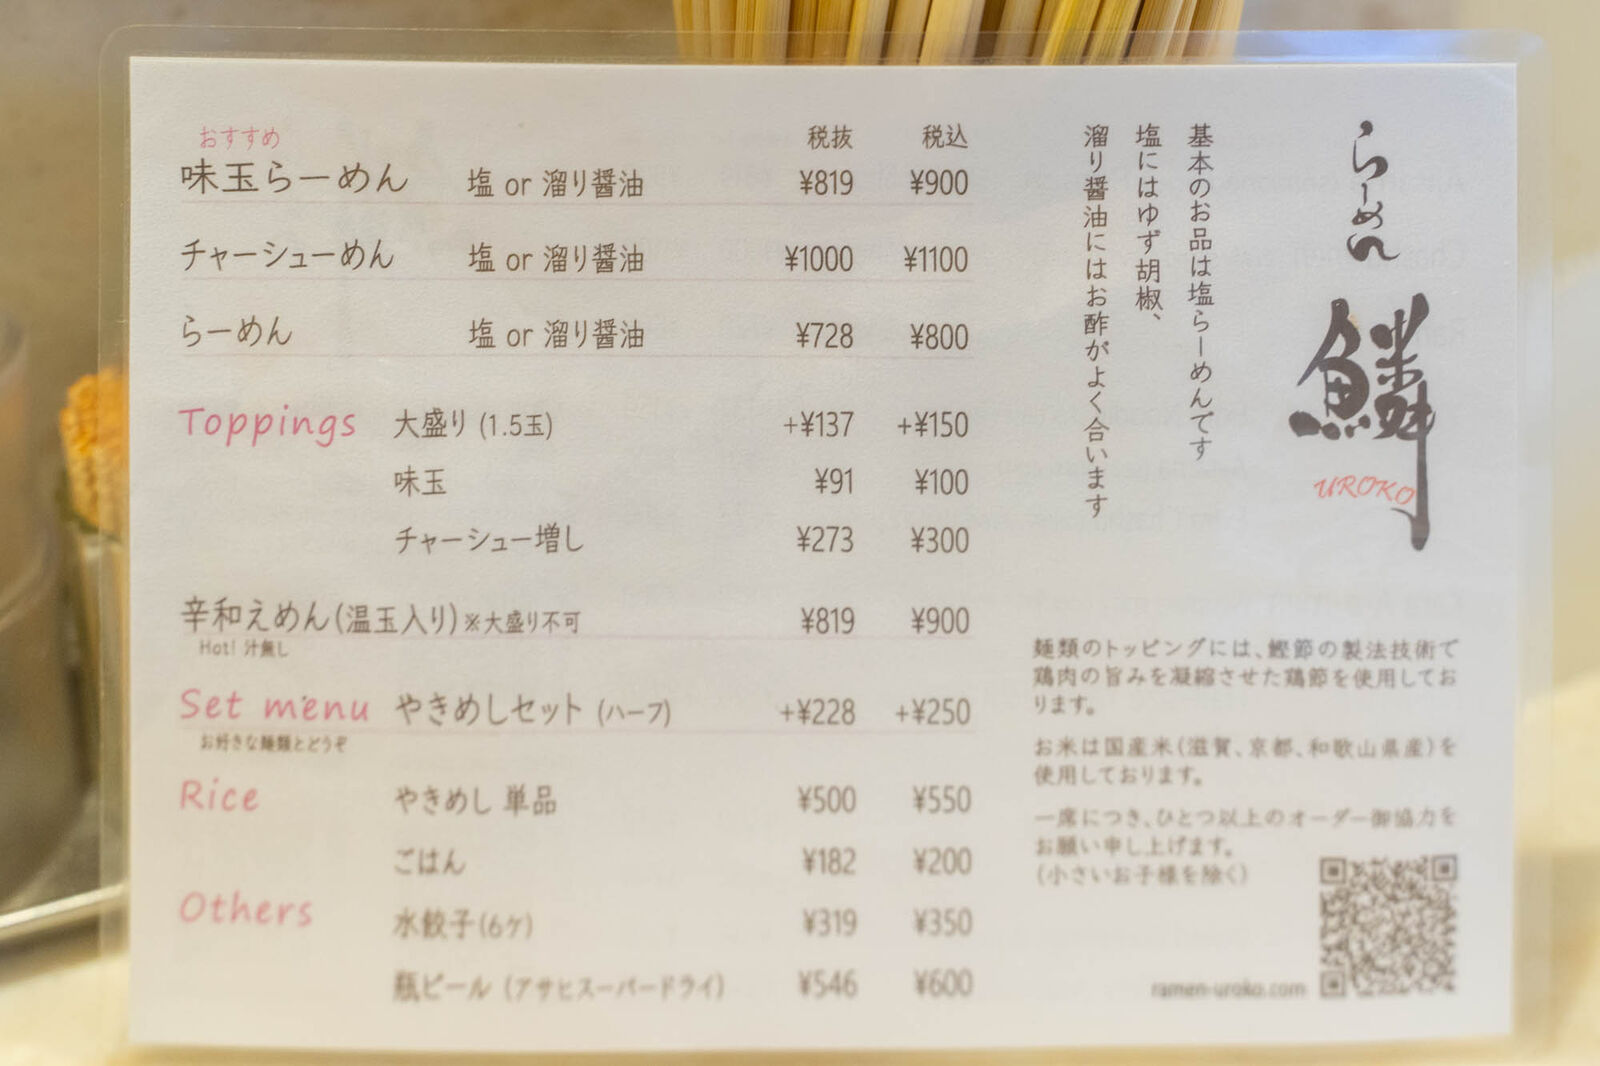 おすすめ
税抜 税込
味玉らーめん 塩 or 溜り醤油 ¥819 ¥900
チャーシューめん 塩 or 溜り醤油 ¥1000 ¥1100
らーめん 塩 or 溜り醤油 ¥728 ¥800
Toppings 大盛り (1.5玉) +¥137 +¥150
味玉 ¥91 ¥100
チャーシュー増し ¥273 ¥300
辛和えめん(温玉入り)※大盛り不可 ¥819 ¥900
Hot! 汁無し
Set menu やきめしセット (ハーフ) +¥228 +¥250
お好きな麺類とどうぞ
Rice やきめし 単品 ¥500 ¥550
ごはん ¥182 ¥200
Others 水餃子(6ケ) ¥319 ¥350
瓶ビール (アサヒスーパードライ) ¥546 ¥600
らーめん
鱗
UROKO
基本のお品は塩らーめんです
塩にはゆず胡椒、
溜り醤油にはお酢がよく合います
麺類のトッピングには、鰹節の製法技術で
鶏肉の旨みを凝縮させた鶏節を使用してお
ります。
お米は国産米(滋賀、京都、和歌山県産)を
使用しております。
一席につき、ひとつ以上のオーダー御協力を
お願い申し上げます。
(小さいお子様を除く)
ramen-uroko.com